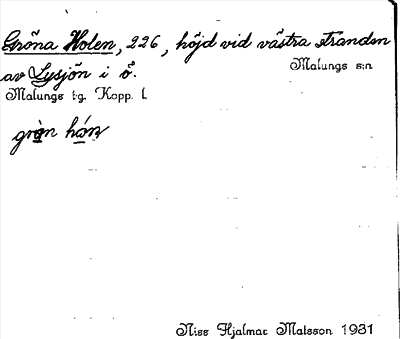 Gröna Holen, 226, höjd vid västra stranden
Malungs s:n
av Lysjön i ö.
Malungs tg. Kopp. l.
grön hón
Nils Hjalmar Matsson 1931